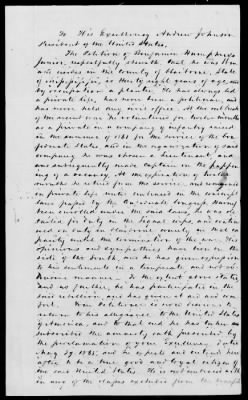 To His Excellency Andrew Johnson
President of the United States.
The Petition of Benjamin Humphreys
Junior, respectfully sheweth, that he was born
and resides in the county of Claiborne, State
of Mississippi, is thirty eight years of age, and
by occupation a planter. He has always led
a private life, has never been a politician, and
has never held any civil office. At the outbreak
of the recent war he volunteered for twelve months
as a private in a company of infantry raised
in the summer of 1861 for the service of the Con
federate States, and in the organization of said
company he was chosen a lieutenant, and
was subsequently made captain on the happen
ing of a vacancy. At the expiration of twelve
months he retired from the service, and
in private life until embraced in the conscript
laws passed by the Confederate Congress. Having
been enrolled under the said laws, he was de
tailed for duty in the local corps, and contin
ued on duty in Claiborne county in that ca
pacity until the termination of the war. His
opinions and sympathies have been on the
side of the South, and he has given expression
to his sentiments in a temperate and not
manner. To the extent above stated
and no further, he has participated in the
late rebellion, and has given it aid and com
fort. Your petitioner is now desirous to
return to his allegiance to the United States
of America, and to that end he has taken &
subscribed the amnesty oath prescribed by
the proclamation of your Excellency, dated
May 29 1865, and he expects and intends here
after to be a true good and loyal citizen of
the said United States. He is not embraced with
in any of the classes excluded from the benefits